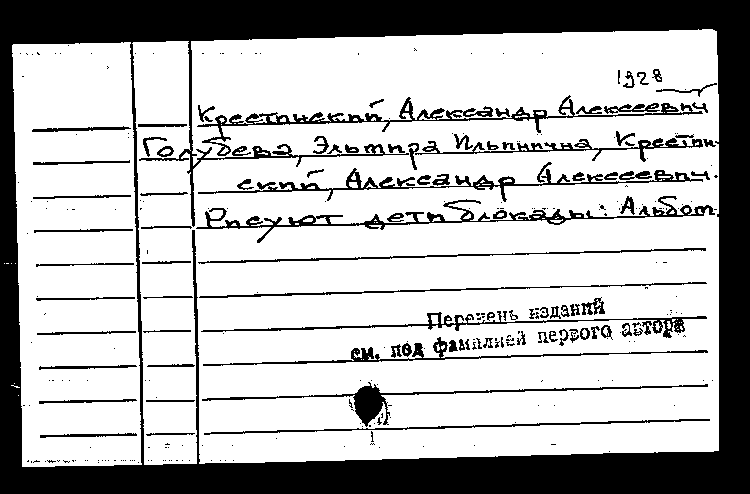 1928
Крестинский, Александр Алексеевич
Голубева, Эльмира Ильинична, Крестин-
ский, Александр Алексеевич.
Рисуют дети блокады: Альбом.
Перечень изданий
см. под фамилией первого автора